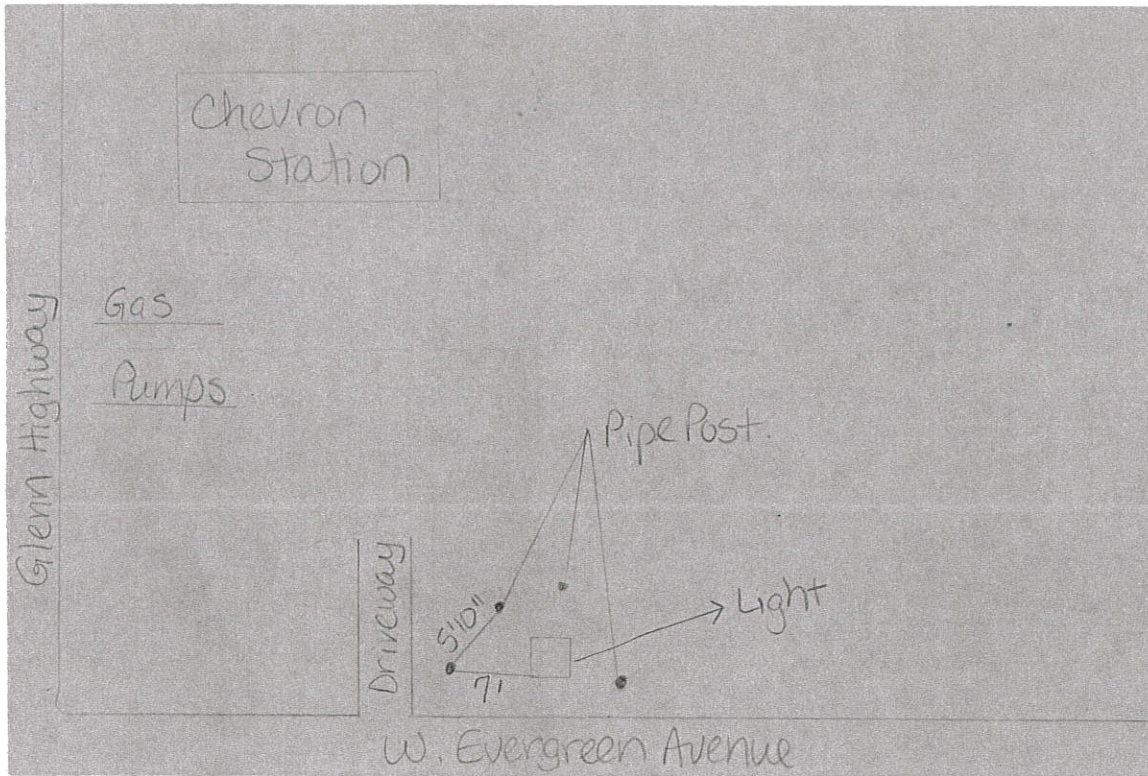 Chevron
Station
Glenn Highway
Gas
Pumps
Pipe Post.
Driveway
5'10"
7'
Light
W. Evergreen Avenue